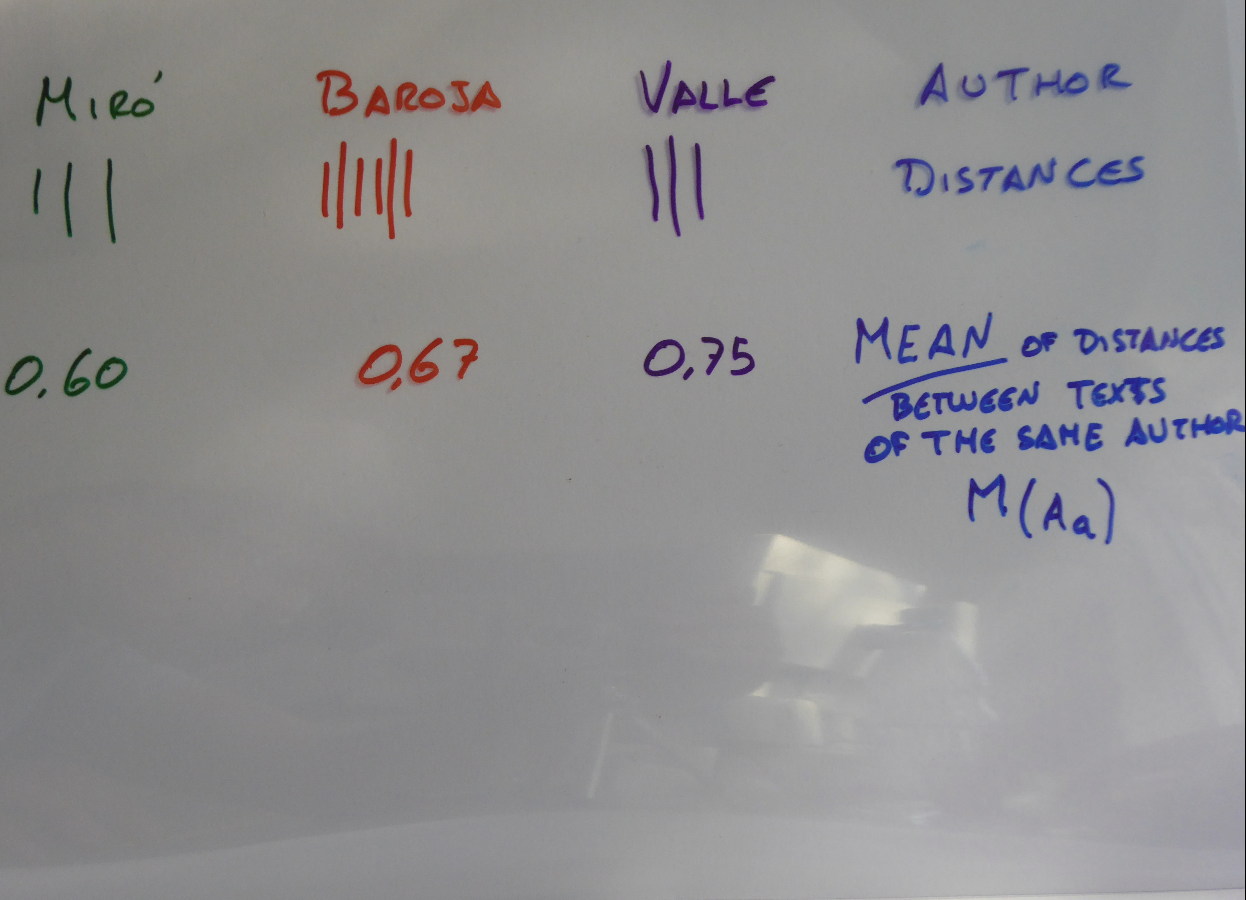 MIRÓ BAROJA VALLE AUTHOR
DISTANCES
0.60 0,67 0,75 MEAN OF DISTANCES
BETWEEN TEXTS
OF THE SAME AUTHOR
M(Aa)